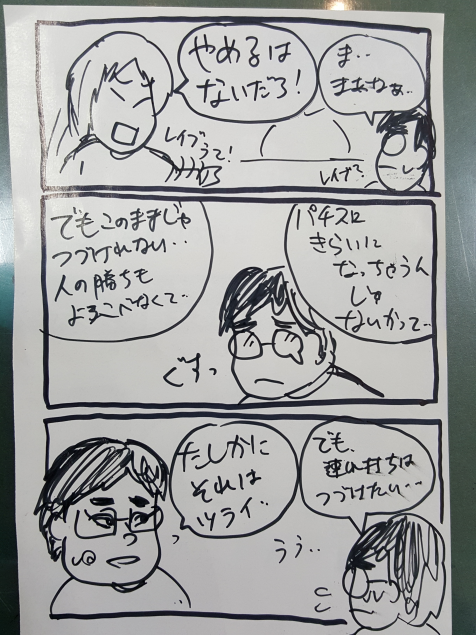 ま‥
まあねぇ‥
やめるは
ないだろ!
パチスロ
きらいに
なっちゃうん
じゃ
ないかって‥
でもこのままじゃ
つづけれない‥
人の勝ちも
よろこべなくて‥
ぐすっ
でも、
連れ打ちは
つづけたい‥‥
うぅ‥
たしかに
それは
ツライ‥